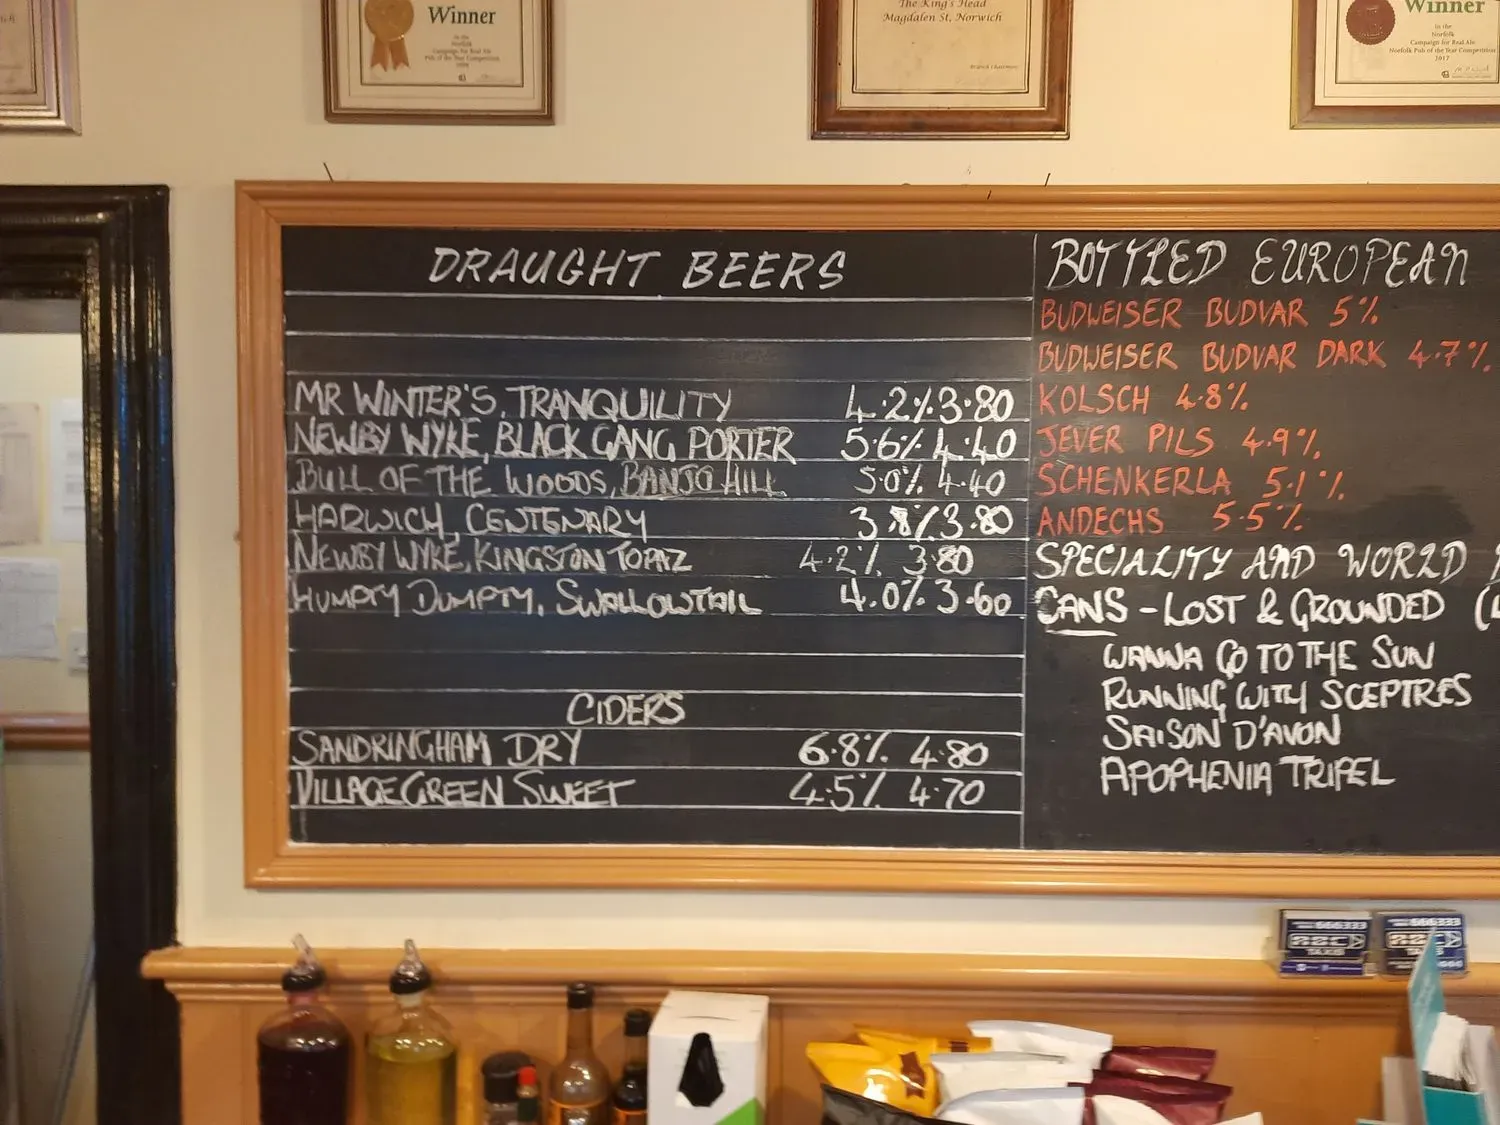 Winner
in the
Norfolk
Campaign for Real Ale
Pub of the Year Competition
The King's Head
Magdalen St, Norwich
Winner
in the
Norfolk
Campaign for Real Ale
Norfolk Pub of the Year Competition
2017
DRAUGHT BEERS
MR WINTER'S, TRANQUILITY 4.2% 3.80
NEWBY WYKE, BLACK GANG PORTER 5.6% 4.40
BULL OF THE WOODS, BANJO HILL 5.0% 4.40
HARWICH, CENTENARY 3.8% 3.80
NEWBY WYKE, KINGSTON TOPAZ 4.2% 3.80
HUMPTY DUMPTY, SWALLOWTAIL 4.0% 3.60
CIDERS
SANDRINGHAM DRY 6.8% 4.80
VILLAGE GREEN SWEET 4.5% 4.70
BOTTLED EUROPEAN
BUDWEISER BUDVAR 5%
BUDWEISER BUDVAR DARK 4.7%
KOLSCH 4.8%
JEVER PILS 4.9%
SCHENKERLA 5.1%
ANDECHS 5.5%
SPECIALITY AND WORLD
CANS - LOST & GROUNDED
WANNA GO TO THE SUN
RUNNING WITH SCEPTRES
SAISON D'AVON
APOPHENIA TRIPEL
666333
ABC
TAXIS
ABC
TAXIS